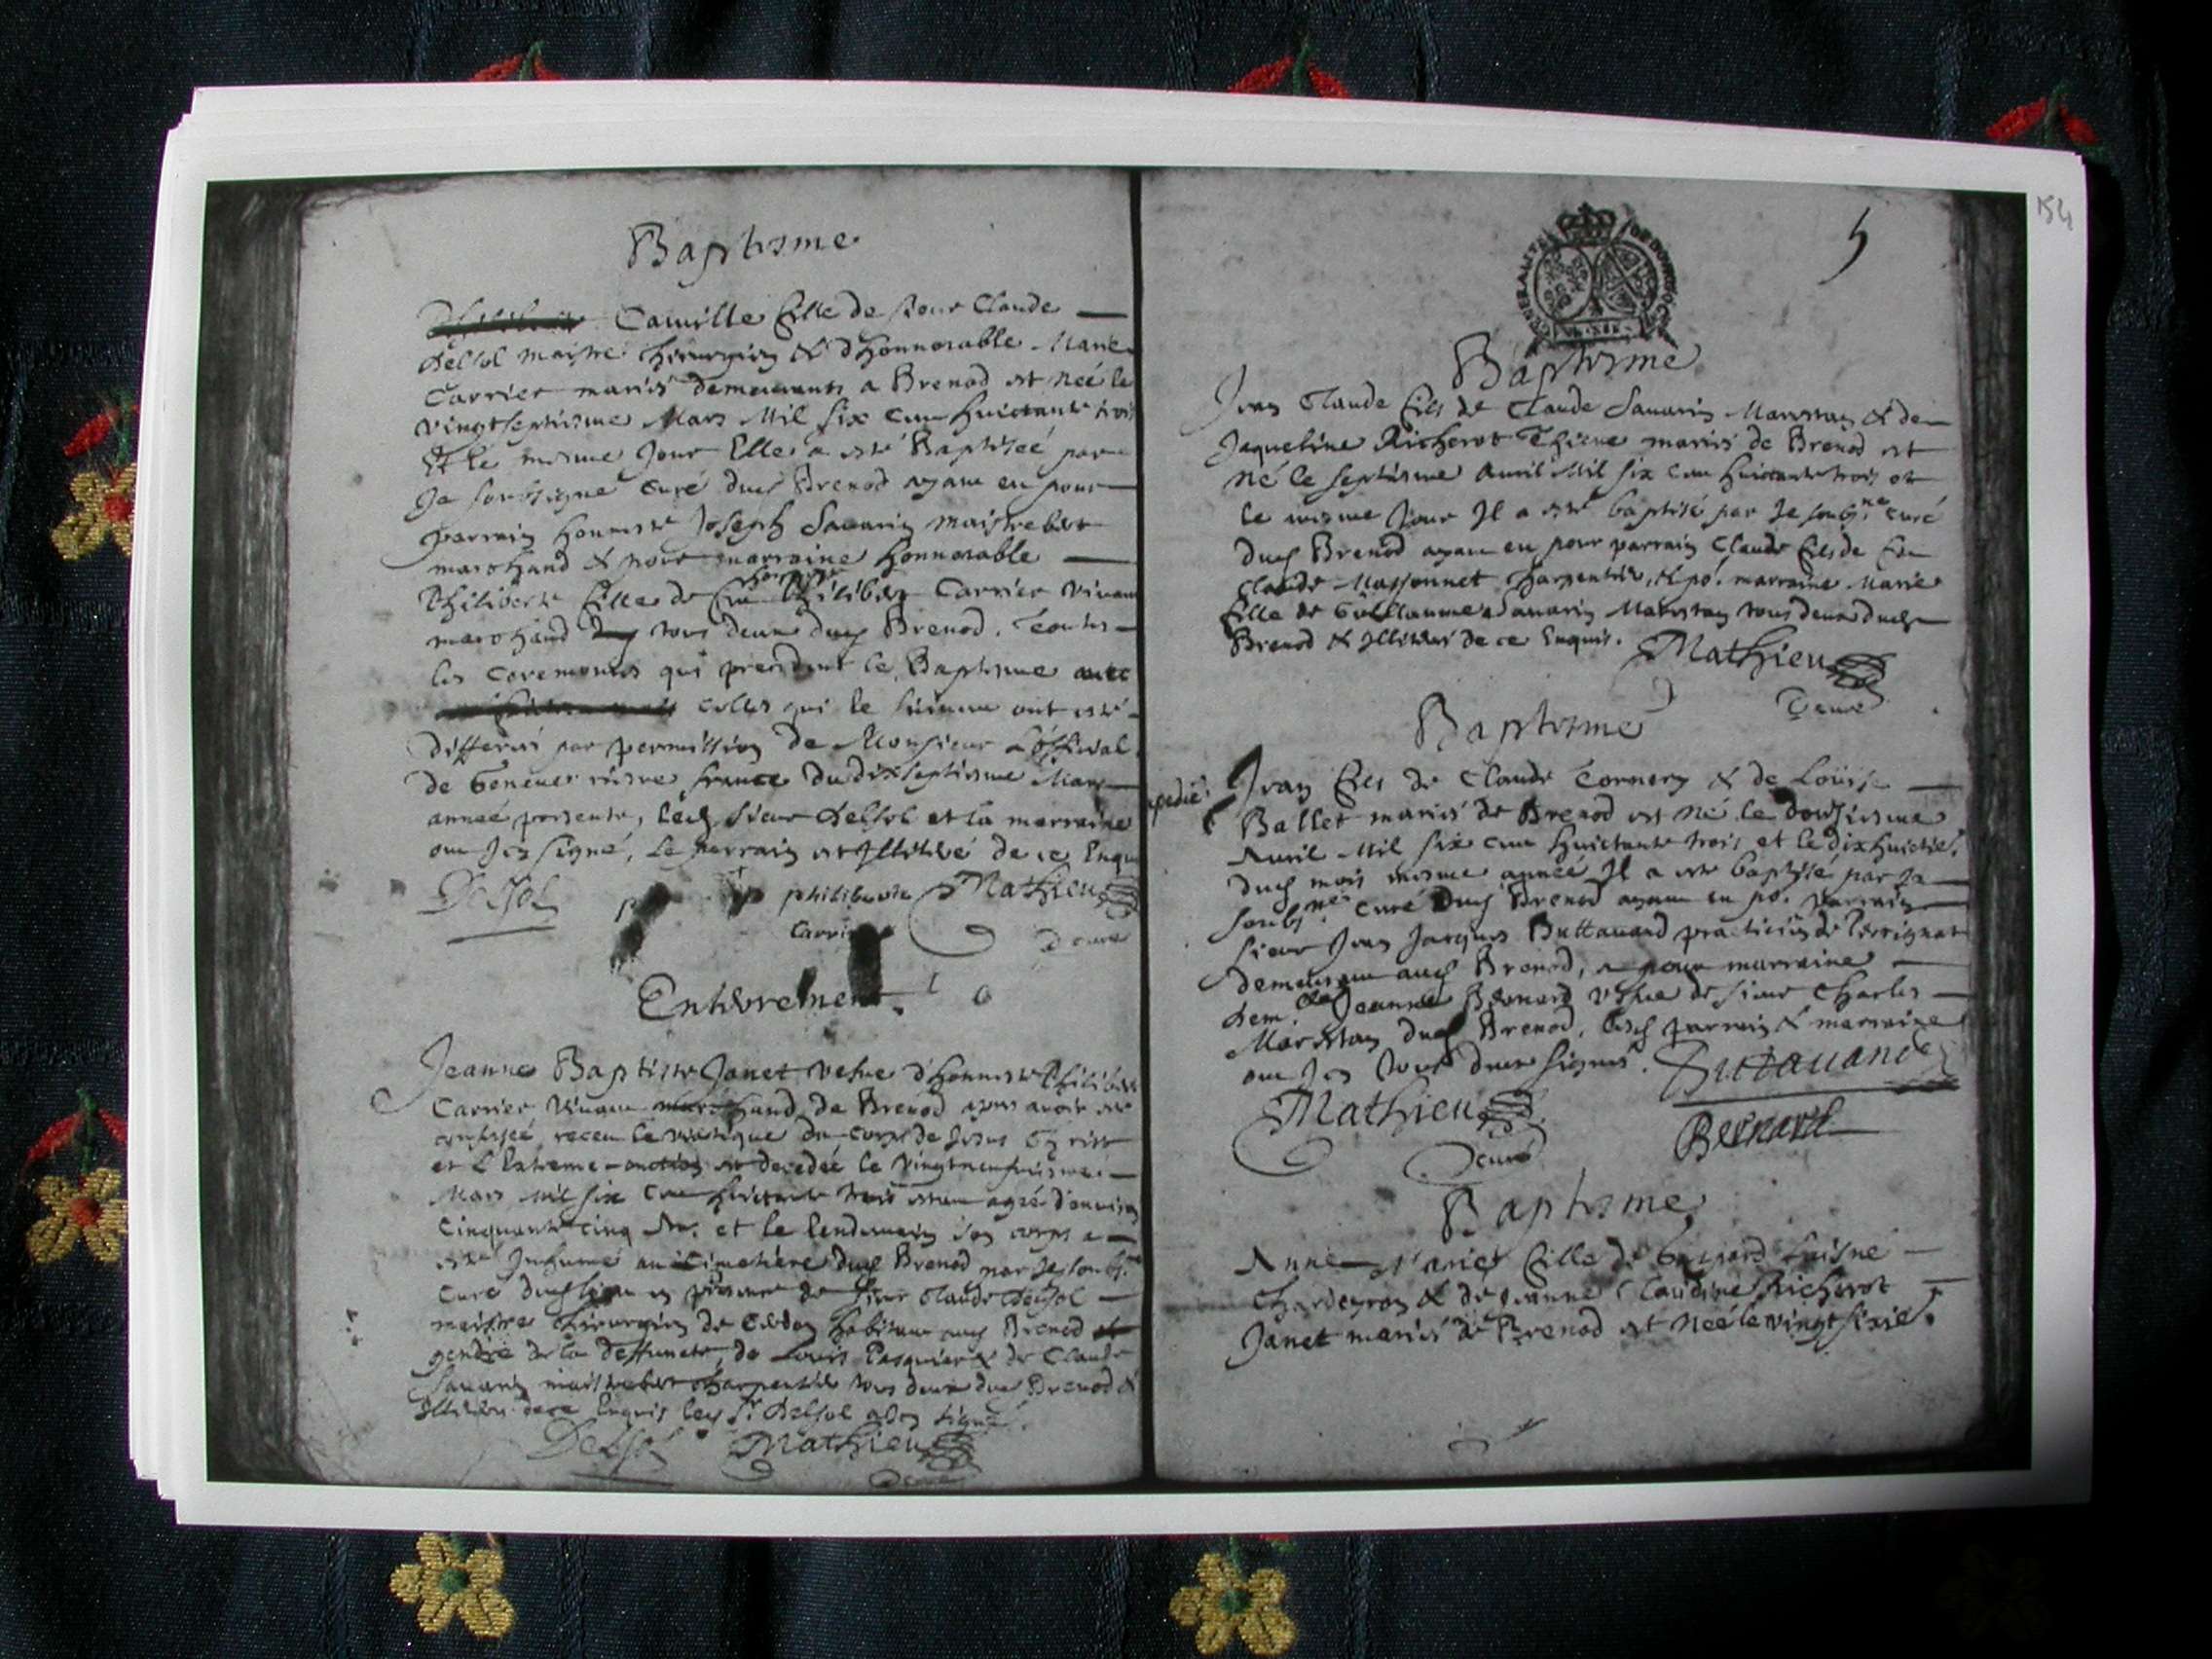 Baptisme
Camille fille de sieur Claude
Delsol maistre Chirurgien & d'honnorable Marie
Carrier mariés demeurants a Brenod est neé le
vingtseptiesme Mars Mil six cens huictante trois
Et le mesme Jour Elle a esté Baptiseé par
Je soubsigné Curé dud Brenod ayant eu pour
parrain honneste Joseph Savarin maistre
marchand & pour marraine honnorable
Philiberte fille de feu honneste Philibert Carrier vivant
marchand tous deux dud Brenod. Toutes
les Ceremonies qui precedent le Baptisme avec
celles qui le suivent ont esté
differées par permission de Monsieur L'official
de Geneve riere france du dixseptiesme Mars
anneé presente, led sieur Delsol et la marraine
ont Icy signé, Le parrain est Illitteré de ce Enquis
Delsol philiberte Mathieu
Carrier Curé
Enterrement
Jeanne Baptiste Janet vefve d'honneste Philibert
Carrier vivant marchand de Brenod apres avoir esté
confesseé, receu le viatique du corps de Jesus Christ
et L'Extreme-onction est decedeé le vingtneufviesme
Mars Mil six cens huictante trois estant ageé d'environ
Cinquante cinq ans. et le lendemain son corps a
esté Inhumé au Cimetiere dud Brenod par Je soubs.né
Curé dud lieu en presence de sieur Claude Delsol
maistre Chirurgien de Cerdon habitant aud Brenod
gendre de la deffuncte, de Louis Pasquier & de Claude
Savarin maistre charpentier tous deux dud Brenod &
Illitterés de ce Enquis led Sr. Delsol a Icy signé.
Delsol Mathieu
Curé
154
5
GENERALITE DE BOURGOGNE
Baptisme
Jean Claude fils de Claude Savarin & de
Jaqueline Richerot mariés de Brenod est
Né le septiesme Avril Mil six cens huictante trois et
le mesme Jour Il a esté baptisé par Je soubs.né Curé
dud Brenod ayant eu pour parrain Claude fils de feu
Claude Massonnet Charpentier, & po.r marraine Marie
fille de Guillaume Savarin tous deux dud
Brenod & Illitterés de ce Enquis. Mathieu
Curé
Baptisme
Jean fils de Claude Tornery & de Loüise
Ballet mariés de Brenod est Né le douziesme
Avril Mil six cens huictante trois et le dixhuictie.
dud mois mesme anneé Il a esté baptisé par Je
soubs.né Curé dud Brenod ayant eu po.r parrain
sieur Jean Jacques Buttavand practicien de
demeurant aud Brenod, & pour marraine
dem.lle Jeanne Bernard vefve de sieur Charles
dud Brenod, lesd parrain & marraine
ont Icy tous deux signés. Butavand
Mathieu
Curé
Bernard
Baptisme
Anne Marie fille de
& de Jeanne Claudine Richerot
Janet mariés de Brenod est Neé le vingt sixie.